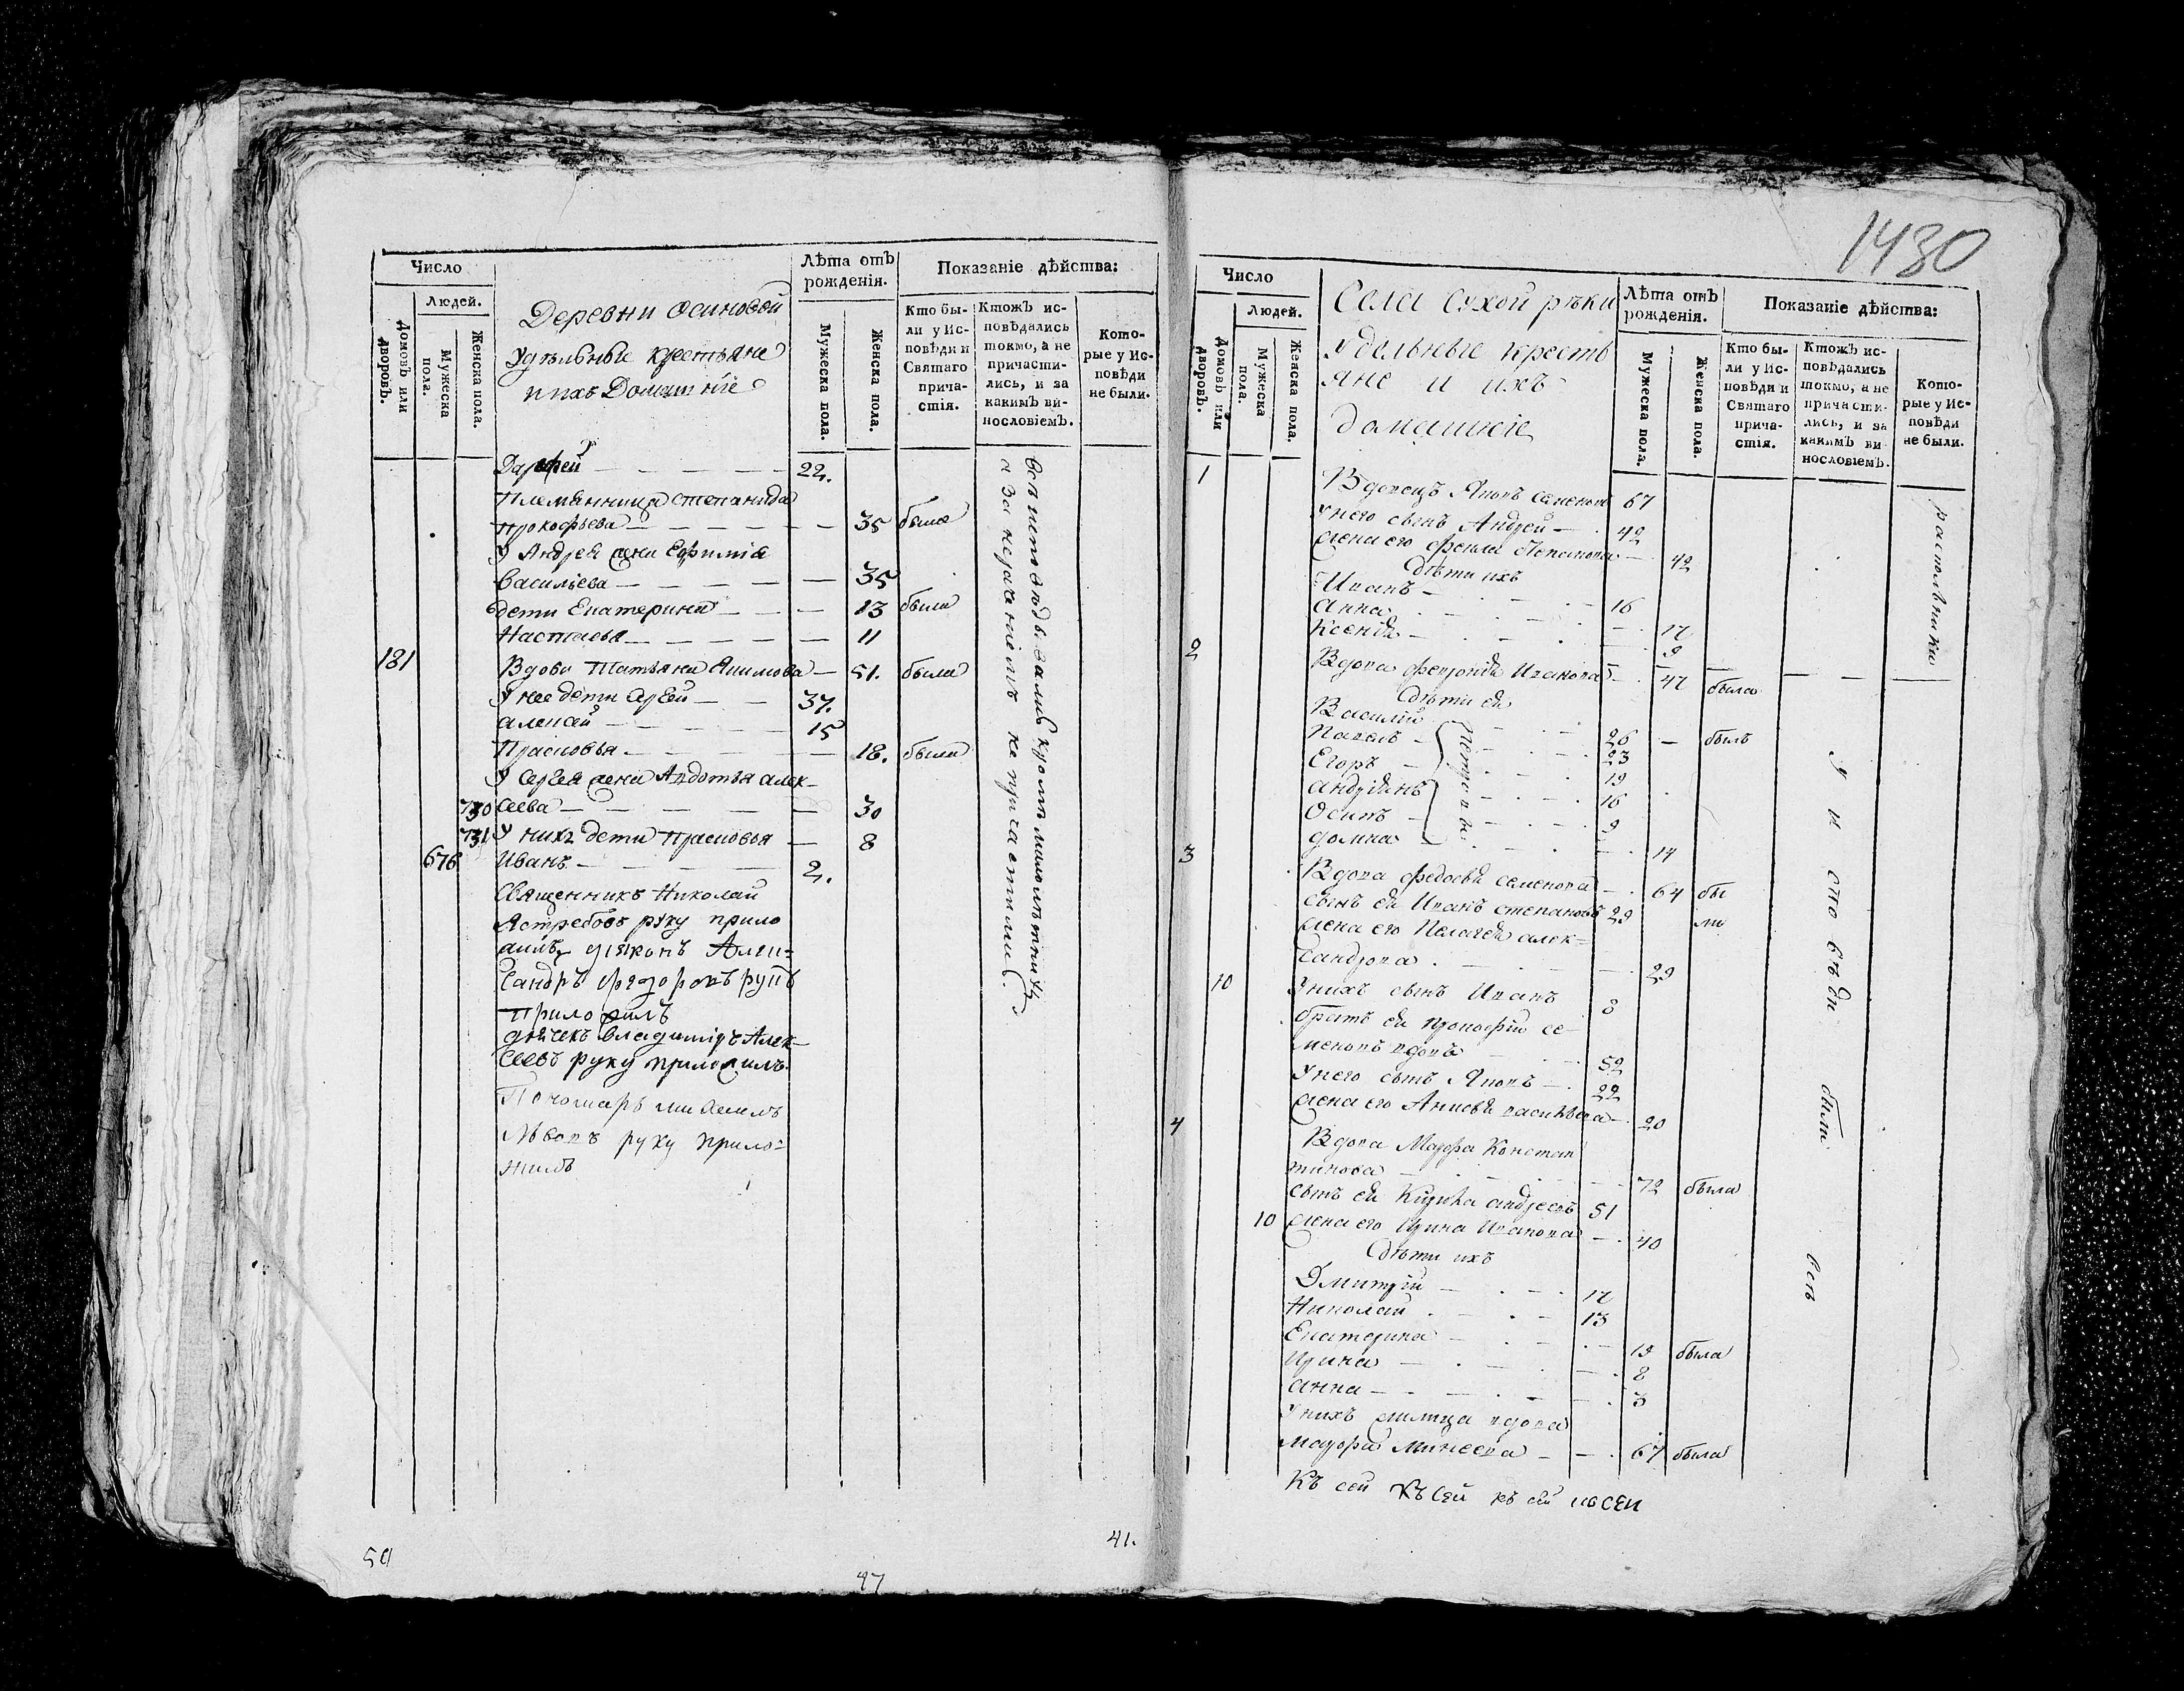 Число
Людей.
Домовъ или дворовъ.
Мужеска пола.
Женска пола.
Деревни Осиновой
Удѣльные крестьяне
и ихъ Домашніе
Лѣта отъ
рожденія.
Мужеска пола.
Женска пола.
Показаніе дѣйства:
Кто бы-
ли у Ис-
повѣди и
Святаго
прича-
стія.
Ктожъ ис-
повѣдались
токмо, а не
причасти-
лись, и за
какимъ ви-
нословіемъ.
Кото-
рые у Ис-
повѣди
не были.
22.
Племянница Степанида
Прокофьева — 35 была
У Андрея жена Ефимія
Васильева — 35
дети Екатерина — 13 была
Настасья — 11
181 Вдова Татьяна Якимова — 51. была
У нее дети Сергей — 37.
Алексей — 15
Прасковья — 18. была
У Сергея жена Авдотья Алек-
730 сеева — 30
731 У нихъ дети Прасковья — 8
676 Иванъ — 2.
Священникъ Николай
Ястребовъ руку прило
жилъ діяконъ Алек=
сандръ Федоровъ руку
Приложилъ
дьячекъ Владиміръ Алек-
сеевъ руку приложилъ
Пономарь Михаилъ
Львовъ руку прило=
жилъ
всѣ исповѣд кромѣ малолѣтних
а за нераченіемъ не причастились
59
97
41.
1430
Число
Людей.
Домовъ или дворовъ.
Мужеска пола.
Женска пола.
Села Сухой рѣки
Удельные кресть
яне и ихъ
домашніе
Лѣта отъ
рожденія.
Мужеска пола.
Женска пола.
Показаніе дѣйства:
Кто бы-
ли у Ис-
повѣди и
Святаго
прича-
стія.
Ктожъ ис-
повѣдались
токмо, а не
причасти-
лись, и за
какимъ ви-
нословіемъ.
Кото-
рые у Ис-
повѣди
не были.
1 Вдовецъ Яковъ Семеновъ 67
У него сынъ Андрей — 42
жена его Фекла Степанова — 42
дѣти ихъ
Иванъ — 16
Анна — 17
Ксенія — 9
2 Вдова Февронія Иванова — 47 была
дѣти ея
Василій — 26 — былъ
Павелъ — 23
Егоръ — 19
Андріянъ — 16
Осипъ — 9
Домна — 14
Петровы
3 Вдова Федосья Семенова — 64 бы
сынъ ея Иванъ Степановъ 29 ли
жена его Пелагея Алек=
сандрова — 29
10 У нихъ сынъ Иванъ 8
братъ ея Прокофій Се-
меновъ вдовъ — 52
У него сынъ Яковъ — 22
жена его Анисья Васильева — 20
4 Вдова Марфа Констан
тинова — 72 была
сынъ ея Кирила Андреевъ 51
10 жена его Ирина Иванова — 40
дѣти ихъ
Дмитрій — 17
Николай — 13
Екатерина — 19 была
Ирина — 8
Анна — 3
У нихъ жилица вдова
Марфа Минеева — 67 была
раскольники
У исповѣди были всѣ
Къ сей Къ сей къ сей къ сей